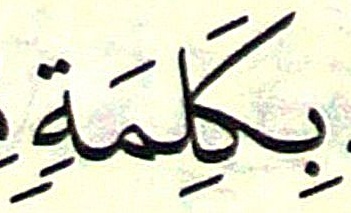 بِكَلِمَةٍ